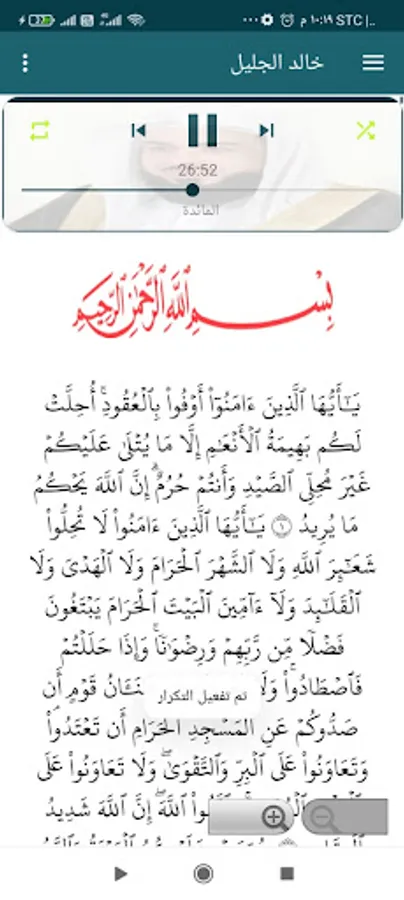 ١٠:١٩ م STC |..
خالد الجليل
26:52
المائدة
بِسْمِ اللَّهِ الرَّحْمَٰنِ الرَّحِيمِ
يَـٰٓأَيُّهَا ٱلَّذِينَ ءَامَنُوٓا۟ أَوْفُوا۟ بِٱلْعُقُودِ ۚ أُحِلَّتْ
لَكُم بَهِيمَةُ ٱلْأَنْعَـٰمِ إِلَّا مَا يُتْلَىٰ عَلَيْكُمْ
غَيْرَ مُحِلِّى ٱلصَّيْدِ وَأَنتُمْ حُرُمٌ ۗ إِنَّ ٱللَّهَ يَحْكُمُ
مَا يُرِيدُ ١ يَـٰٓأَيُّهَا ٱلَّذِينَ ءَامَنُوا۟ لَا تُحِلُّوا۟
شَعَـٰٓئِرَ ٱللَّهِ وَلَا ٱلشَّهْرَ ٱلْحَرَامَ وَلَا ٱلْهَدْىَ وَلَا
ٱلْقَلَـٰٓئِدَ وَلَآ ءَآمِّينَ ٱلْبَيْتَ ٱلْحَرَامَ يَبْتَغُونَ
فَضْلًا مِّن رَّبِّهِمْ وَرِضْوَٰنًا ۚ وَإِذَا حَلَلْتُمْ
فَٱصْطَادُوا۟ ۚ قَوْمٍ أَن
تم تفعيل التكرار
صَدُّوكُمْ عَنِ ٱلْمَسْجِدِ ٱلْحَرَامِ أَن تَعْتَدُوا۟
وَتَعَاوَنُوا۟ عَلَى ٱلْبِرِّ وَٱلتَّقْوَىٰ ۖ وَلَا تَعَاوَنُوا۟ عَلَى
ٱللَّهَ ۖ إِنَّ ٱللَّهَ شَدِيدُ